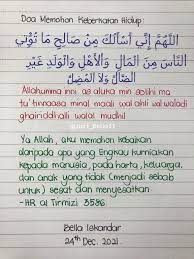 Doa Memohon Keberkatan Hidup:
اللَّهُمَّ إِنِّي أَسْأَلُكَ مِنْ صَالِحِ مَا تُؤْتِي
النَّاسَ مِنَ الْمَالِ وَالْأَهْلِ وَالْوَلَدِ غَيْرِ
الضَّالِّ وَلَا الْمُضِلِّ
Allahumma inni as aluka min solihi ma
tu'tinnaasa minal maali wal ahli wal waladi
ghairiddhalli walal mudhil
Ya Allah, aku memohon kebaikan
daripada apa yang Engkau kurniakan
kepada manusia, pada harta, keluarga,
dan anak yang tidak (menjadi sebab
untuk) sesat dan menyesatkan
-HR at Tirmizi 3586.
Bella Iskandar
24th Dec. 2021.